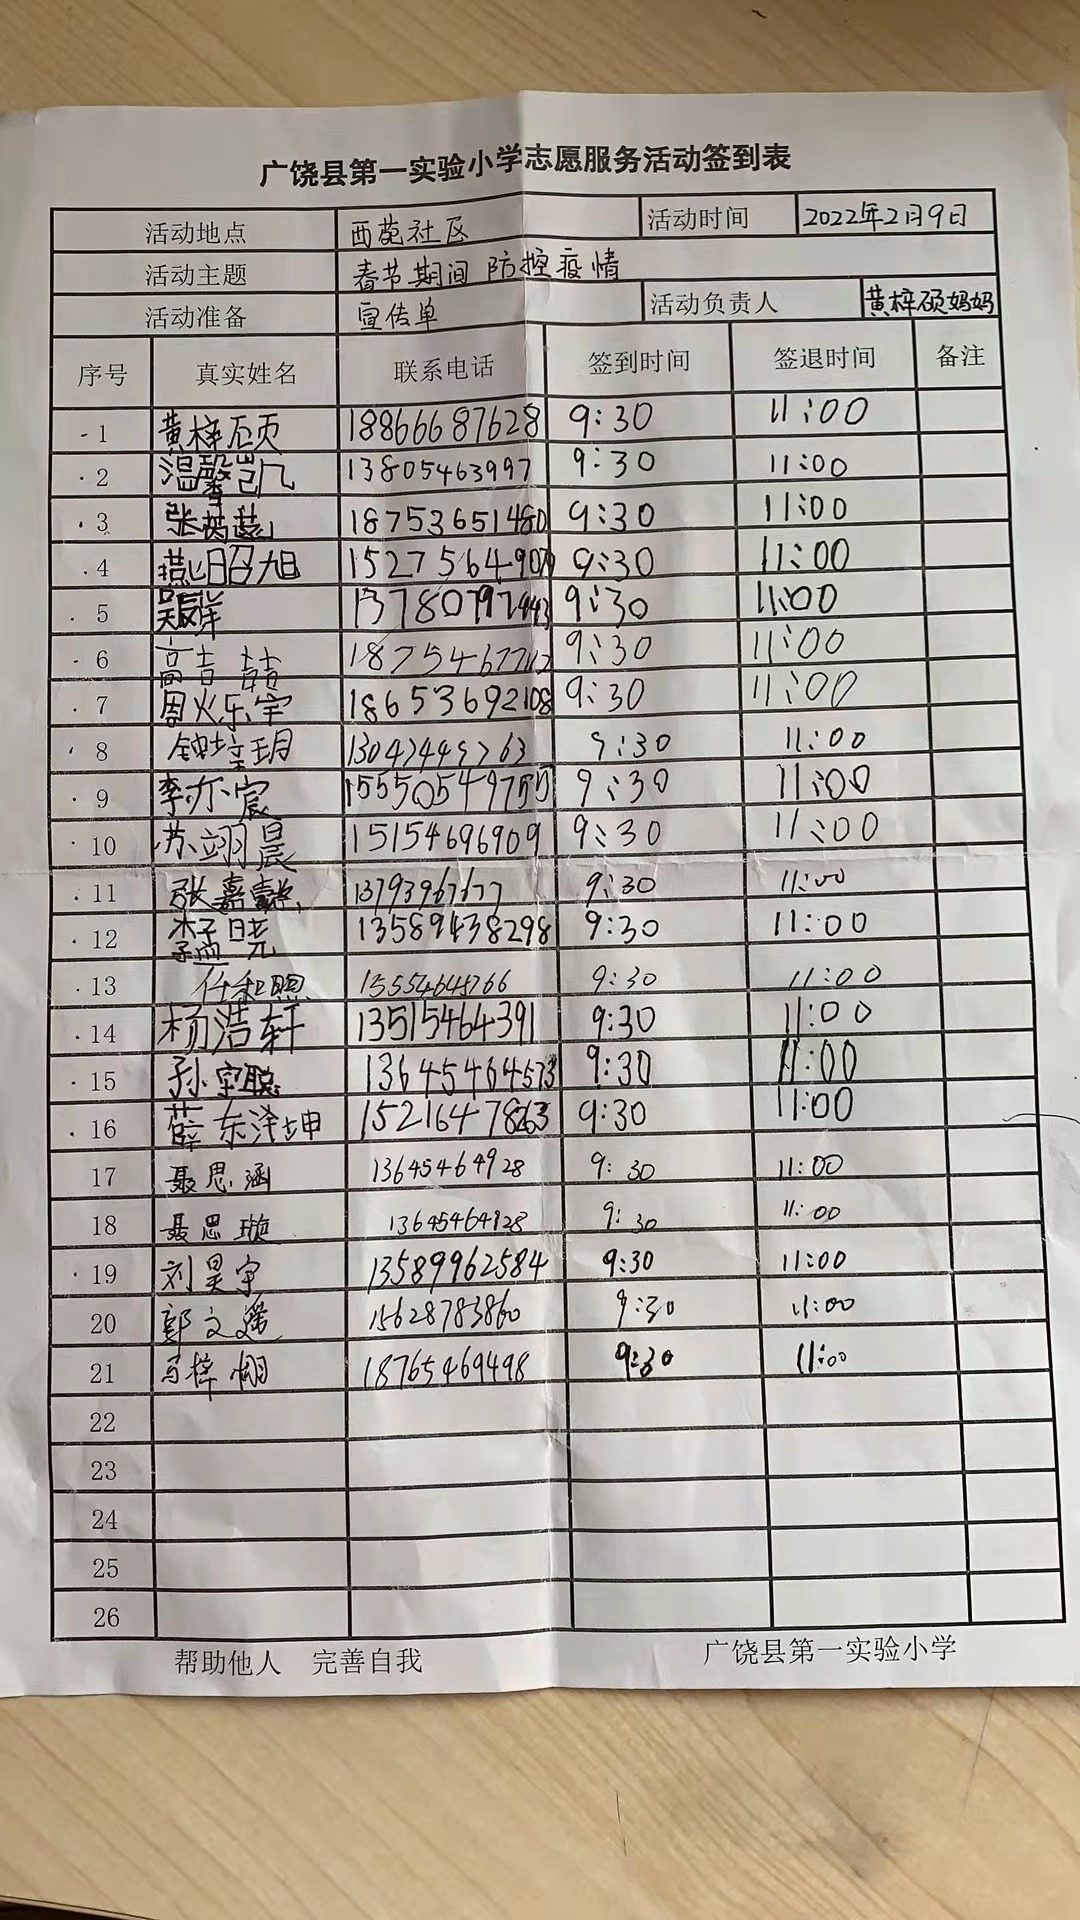 广饶县第一实验小学志愿服务活动签到表
活动地点 西苑社区 活动时间 2022年2月9日
活动主题 春节期间 防控疫情
活动准备 宣传单 活动负责人 黄梓硕妈妈
序号 真实姓名 联系电话 签到时间 签退时间 备注
1 黄梓硕 18866687628 9:30 11:00
2 温馨凯 13805463997 9:30 11:00
3 张 18753651480 9:30 11:00
4 燕昭旭 9:30 11:00
5 9:30 11:00
6 高 9:30 11:00
7 周烁宇 18653692108 9:30 11:00
8 钟培玥 9:30 11:00
9 李亦宸 9:30 11:00
10 苏翊晨 15154696909 9:30 11:00
11 张嘉 13793967677 9:30 11:00
12 13589438298 9:30 11:00
13 任和照 9:30 11:00
14 杨浩轩 13515464391 9:30 11:00
15 孙宇聪 13645464573 9:30 11:00
16 薛东泽坤 15216478263 9:30 11:00
17 聂思涵 13645464928 9:30 11:00
18 聂思璇 13645464928 9:30 11:00
19 刘昊宇 13589962584 9:30 11:00
20 郭文瑶 15628783860 9:30 11:00
21 马梓栩 18765469498 9:30 11:00
22
23
24
25
26
帮助他人 完善自我 广饶县第一实验小学